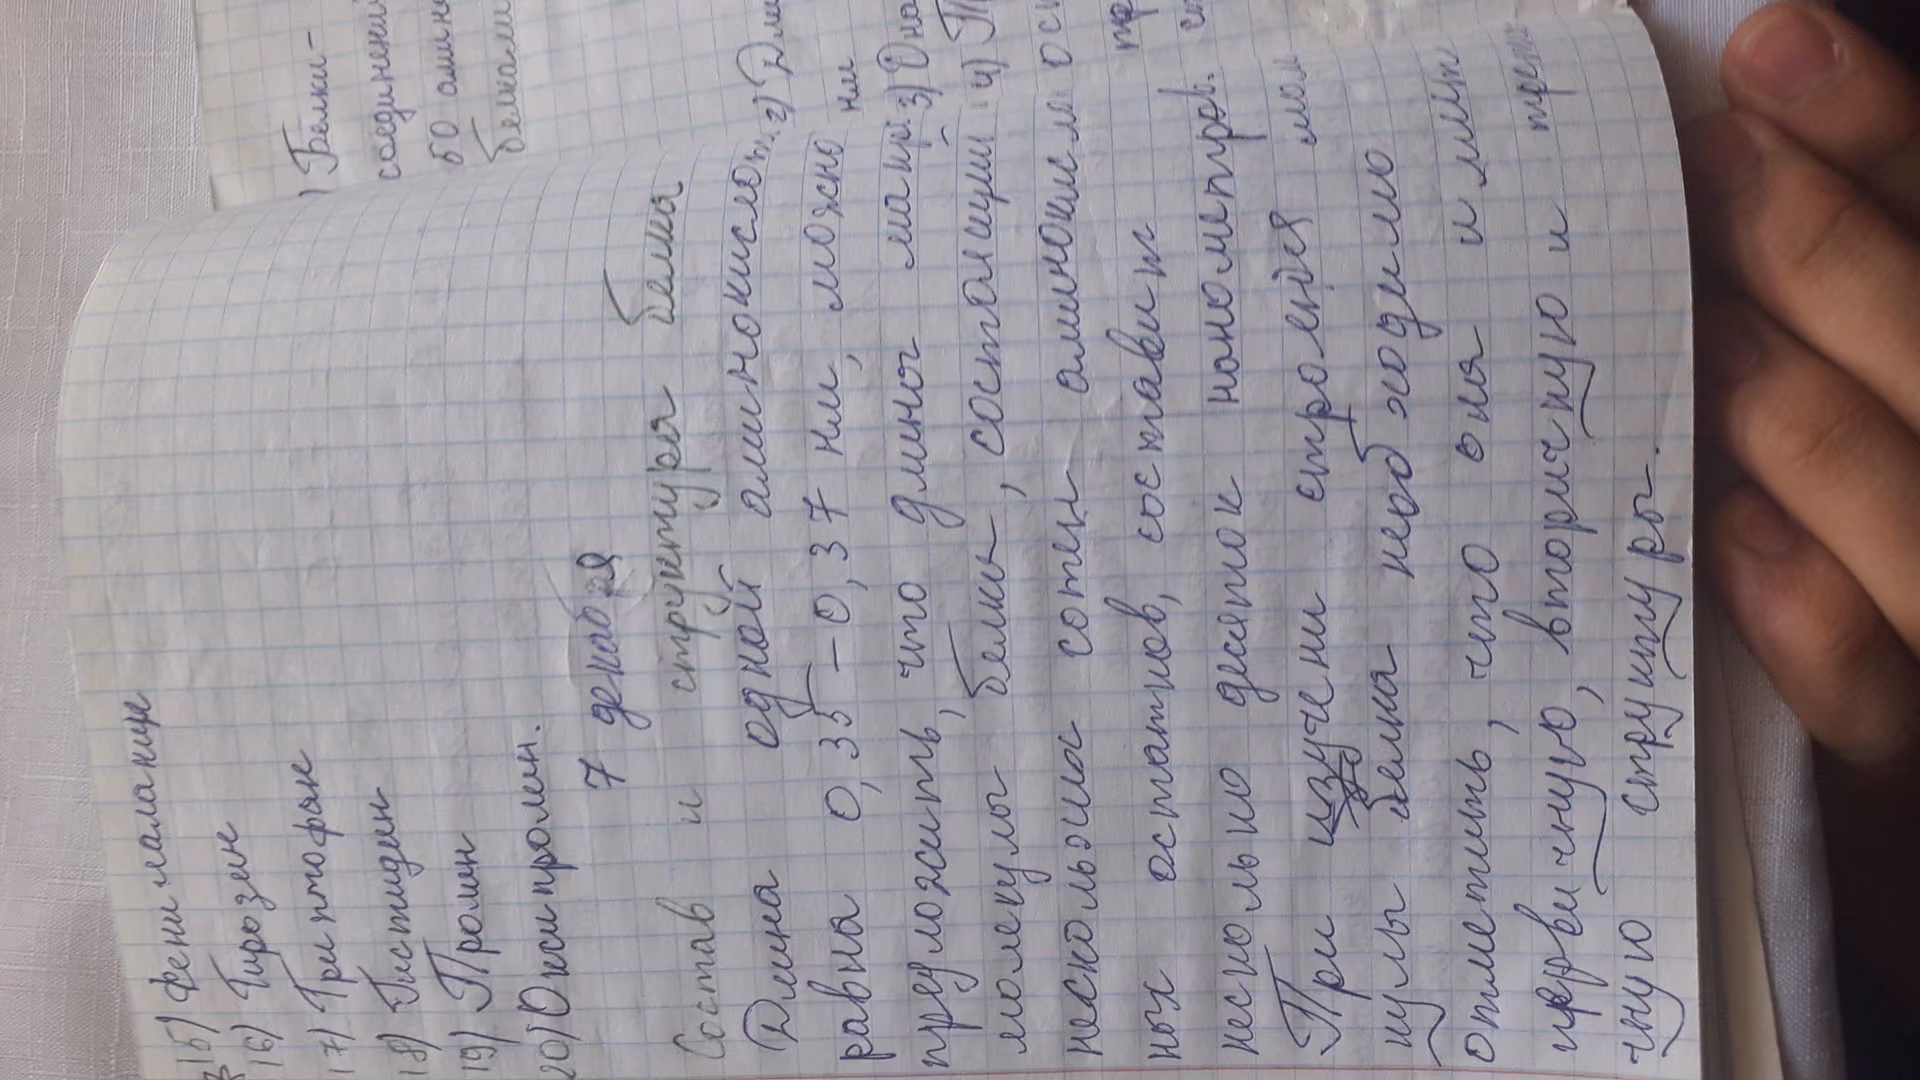 15) Фенилаланице
16) Тирозин
17) Триптофан
18) Гистидин
19) Пролин
20) Оксипролин.
7 декабря
Состав и структура белка
Длина одной аминокислоты
равна 0,35 – 0,37 нм, можно
предложить, что длины макр
молекулы белка, состоящии
нескольких сотен аминокисл
ных остатков, составит
несколько десяток нонометров.
При изучени строендя мол
кулы белка необходимо
отметить, что оня и име
первичную, вторичную и трети
чную структуры.
1) Белки-
соединений
50 амино
белками
2) Дли
ни
3) Дна
4)